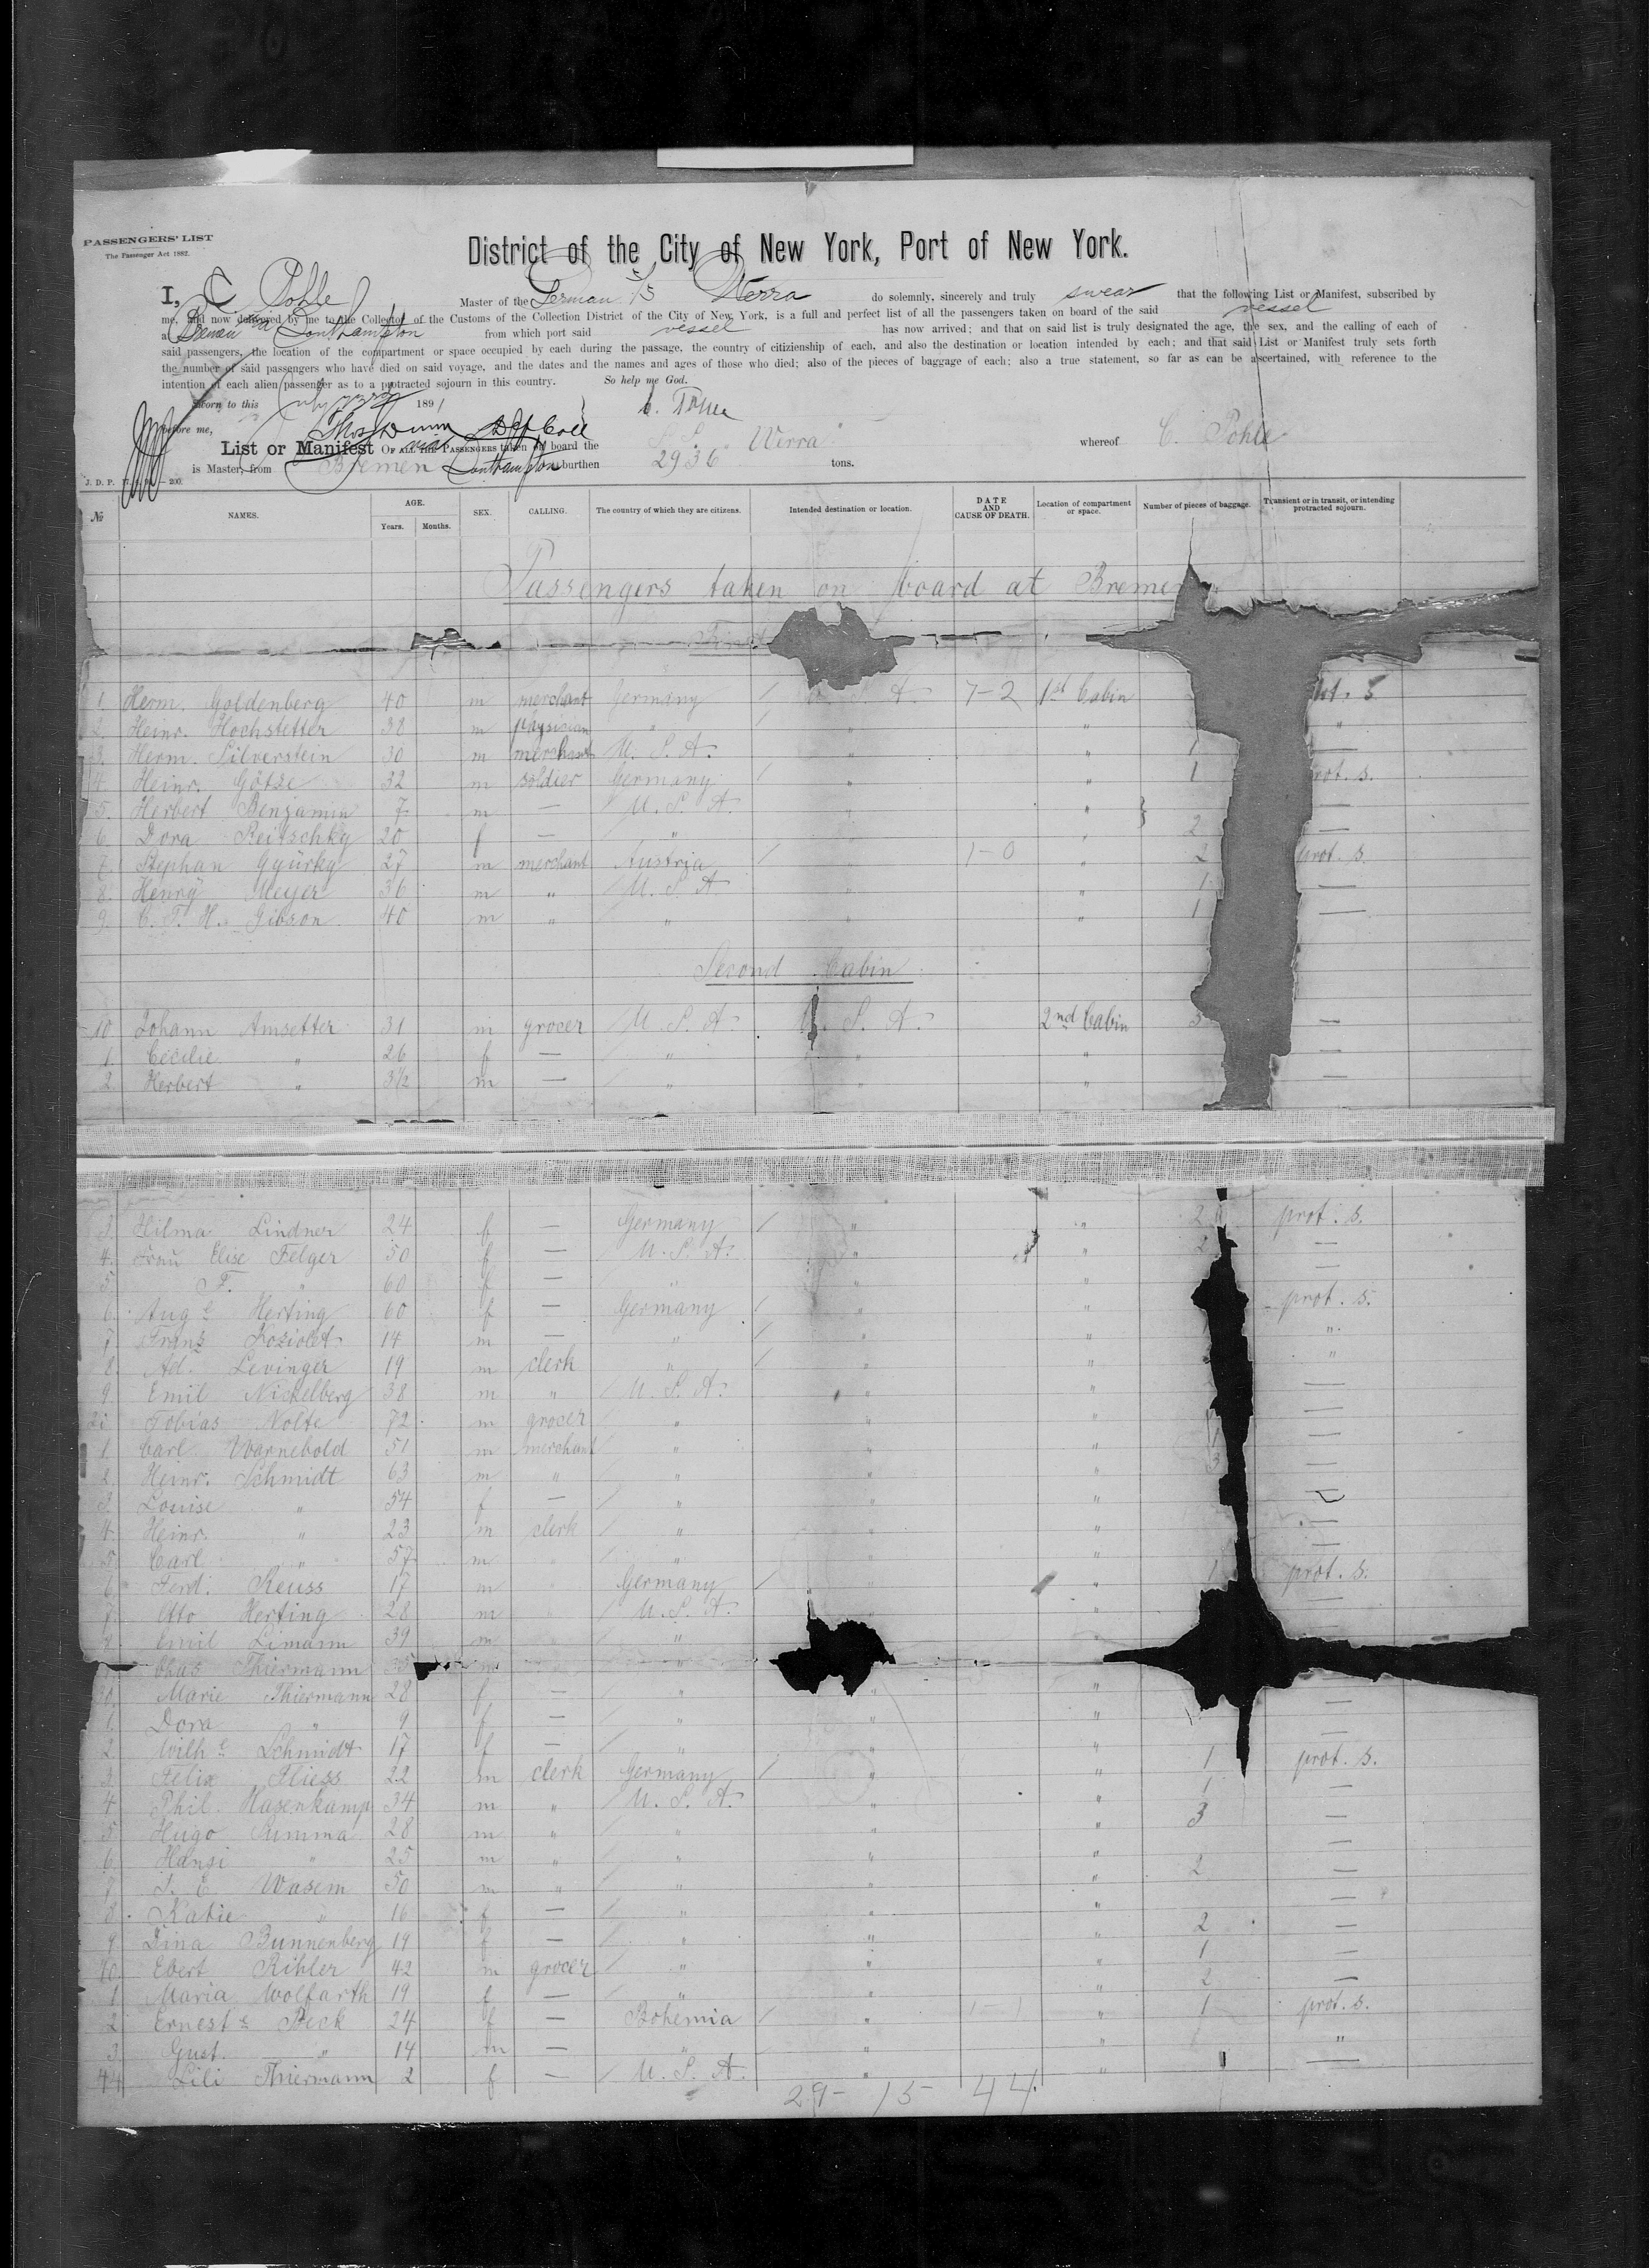 PASSENGERS' LIST
The Passenger Act 1882.
District of the City of New York, Port of New York.
I, C Pohle Master of the German S/S Werra do solemnly, sincerely and truly swear that the following List or Manifest, subscribed by
me, and now delivered by me to the Collector of the Customs of the Collection District of the City of New York, is a full and perfect list of all the passengers taken on board of the said vessel
at Bremen via Southampton from which port said vessel has now arrived; and that on said list is truly designated the age, the sex, and the calling of each of
said passengers, the location of the compartment or space occupied by each during the passage, the country of citizienship of each, and also the destination or location intended by each; and that said List or Manifest truly sets forth
the number of said passengers who have died on said voyage, and the dates and the names and ages of those who died; also of the pieces of baggage of each; also a true statement, so far as can be ascertained, with reference to the
intention of each alien passenger as to a protracted sojourn in this country. So help me God.
Sworn to this July 189 1
before me, Thos Dunn Dep Coll
List or Manifest OF ALL THE PASSENGERS taken on board the S.S. "Werra" whereof C. Pohle
is Master, from Bremen via Southampton burthen 2936 tons.
J. D. P.
№ NAMES. AGE. Years. Months. SEX. CALLING. The country of which they are citizens. Intended destination or location. DATE AND CAUSE OF DEATH. Location of compartment or space. Number of pieces of baggage. Transient or in transit, or intending protracted sojourn.
Passengers taken on board at Bremen
First
1. Herm. Goldenberg 40 m merchant Germany / U. S. A. 7-2 1st Cabin prot. s
2. Heinr. Hochstetter 38 m physician " / " " "
3. Herm. Silverstein 30 m merchant U. S. A. " " 1 —
4. Heinr. Götze 32 m soldier Germany / " " 1 prot. s.
5. Herbert Benjamin 7 m — / U. S. A. " " } —
6. Dora Reitschky 20 f — / " " " 2 —
7. Stephan Gyürky 27 m merchant Austria / " 1-0 " 2 prot. s.
8. Henry Meyer 36 m " / U. S. A " " 1 —
9. C. F. H. Gibson 40 m " / " " " 1 —
Second Cabin
10 Johann Amsetter 31 m grocer / U. S. A. U. S. A. 2nd Cabin 3 —
1. Cecilie " 26 f — / " " " —
2. Herbert " 3½ m — / " " " —
3. Hilma Lindner 24 f — Germany / " " 2 prot. s.
4. Frau Elise Felger 50 f — U. S. A. " " 2 —
5 F. " 60 f — " " —
6. Aug e Herting 60 f — Germany / " " prot. s.
7 Franz Koziolet 14 m — " / " " "
8. Ad. Levinger 19 m clerk " / " " "
9. Emil Nickelberg 38 m " / U. S. A. " " —
20 Tobias Nolte 72 m grocer / " " " —
1 Carl Warnebold 51 m merchant " " " 1 —
2. Heinr. Schmidt 63 m " / " " " 3 —
3. Louise " 54 f — / " " " —
4. Heinr. " 23 m clerk / " " " —
5. Carl " 57 m / " " " —
6 Ferd. Reuss 17 m Germany / " " 1 prot. s.
7. Otto Herting 28 m / U. S. A. " —
8 Emil Limann 39 m / " " —
Chas Thiermann 35 m "
30. Marie Thiermann 28 f — " " " —
1. Dora " 9 f — / " " " —
2. Wilh e Schmidt 17 f — / " " " —
3. Felix Fliess 22 m clerk Germany / " " 1 prot. s.
4 Phil. Hasenkamp 34 m " / U. S. A. " " 1 —
5 Hugo Summa 28 m " / " " " 3 —
6. Hansi " 25 m " / " " " —
7 Wasem 50 m " / " " " 2 —
8. Katie " 16 f — / " " " —
9 Dina Bunnenberg 19 f — / " " " 2 —
40. Ebert Rihler 42 m grocer / " " " 1 —
1 Maria Wolfarth 19 f — / " " " 2 —
2 Ernest e Beck 24 f — Bohemia / " 1-1 " 1 prot. s.
3 Gust. " 14 m — " / " " "
44 Lili Thiermann 2 f — / U. S. A. " " —
29- 15- 44.